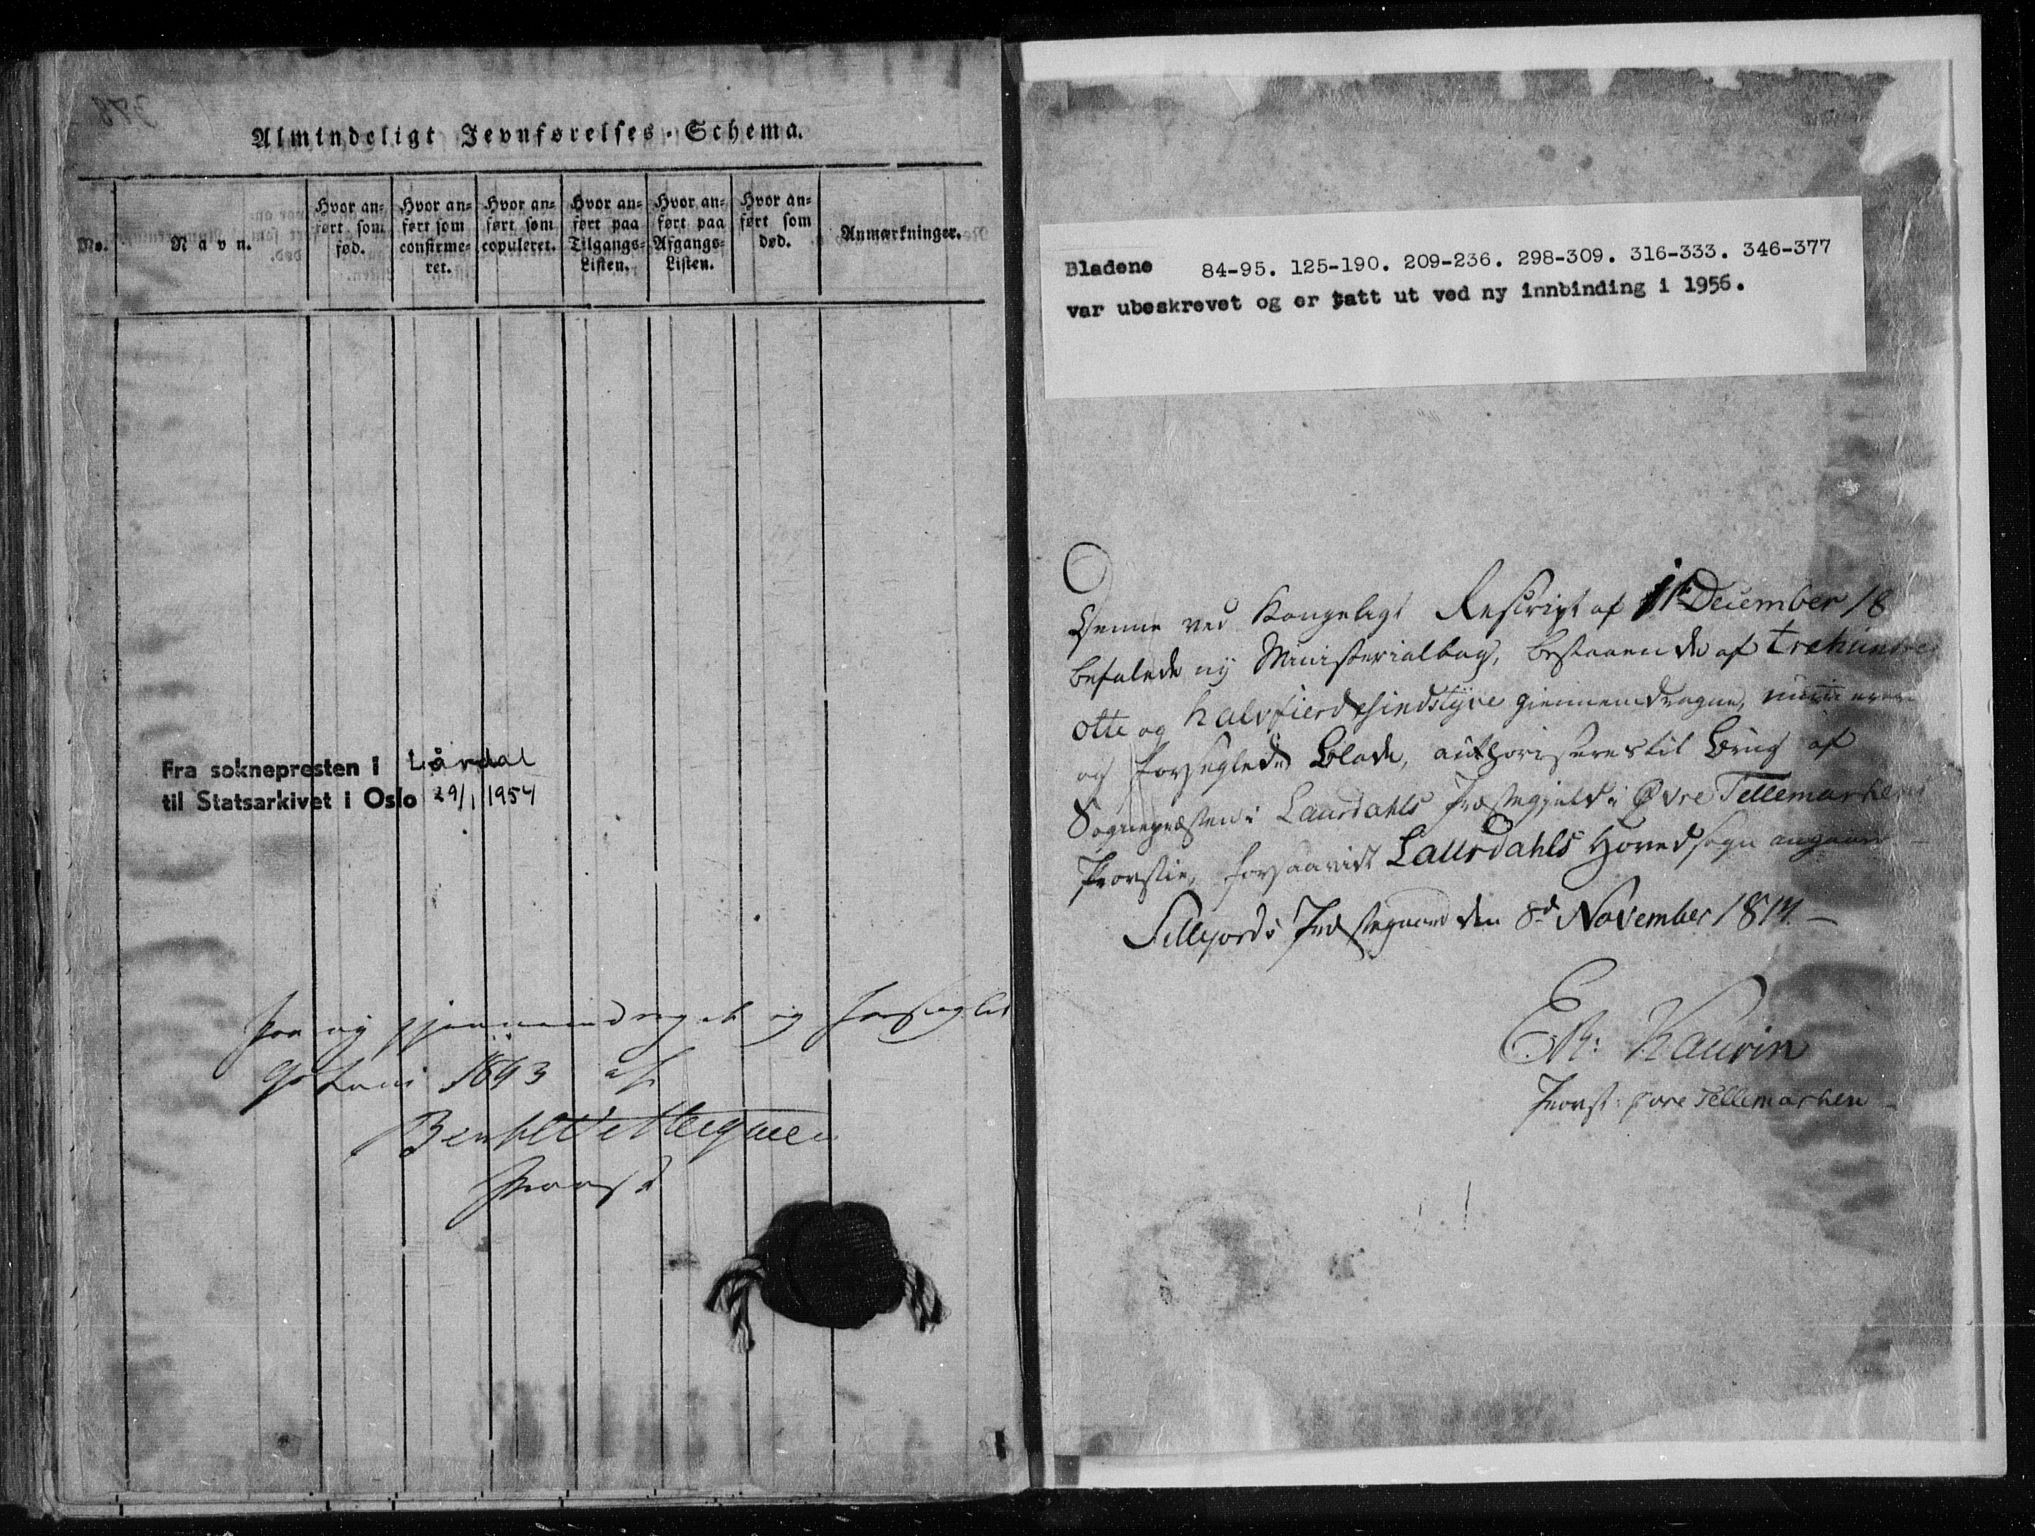 378
Almindeligt Jevnførelses-Schema.
No.
Navn.
Hvor an-
ført som
fød.
Hvor an-
ført som
confirme-
ret.
Hvor an-
ført som
copuleret.
Hvor an-
ført paa
Tilgangs-
Listen.
Hvor an-
ført paa
Afgangs-
Listen.
Hvor an-
ført som
død.
Anmærkninger.
Fra soknepresten i Lårdal
til Statsarkivet i Oslo 29/1 1954
Paa ny gjennemdraget og forseglet
9de Juni 1843 af
Provst
Bladene 84-95. 125-190. 209-236. 298-309. 316-333. 346-377
var ubeskrevet og er tatt ut ved ny innbinding i 1956.
Denne ved Kongeligt Rescript af 1ste December 18
befalede ny Ministerialbog, bestaaende af trehundrede
otte og halvfierdesindstyve giennemdragne,
og forseglede Blade, authoriseres til Brug af
Sognepræsten i Laurdahls Præstegjeld i Øvre Tellemarkens
Provstie, forsaavidt Laurdahls Hovedsogn angaaer
Sillejords Præstegaard den 8de November 1814.
Kaurin
Provst i øvre Tellemarken